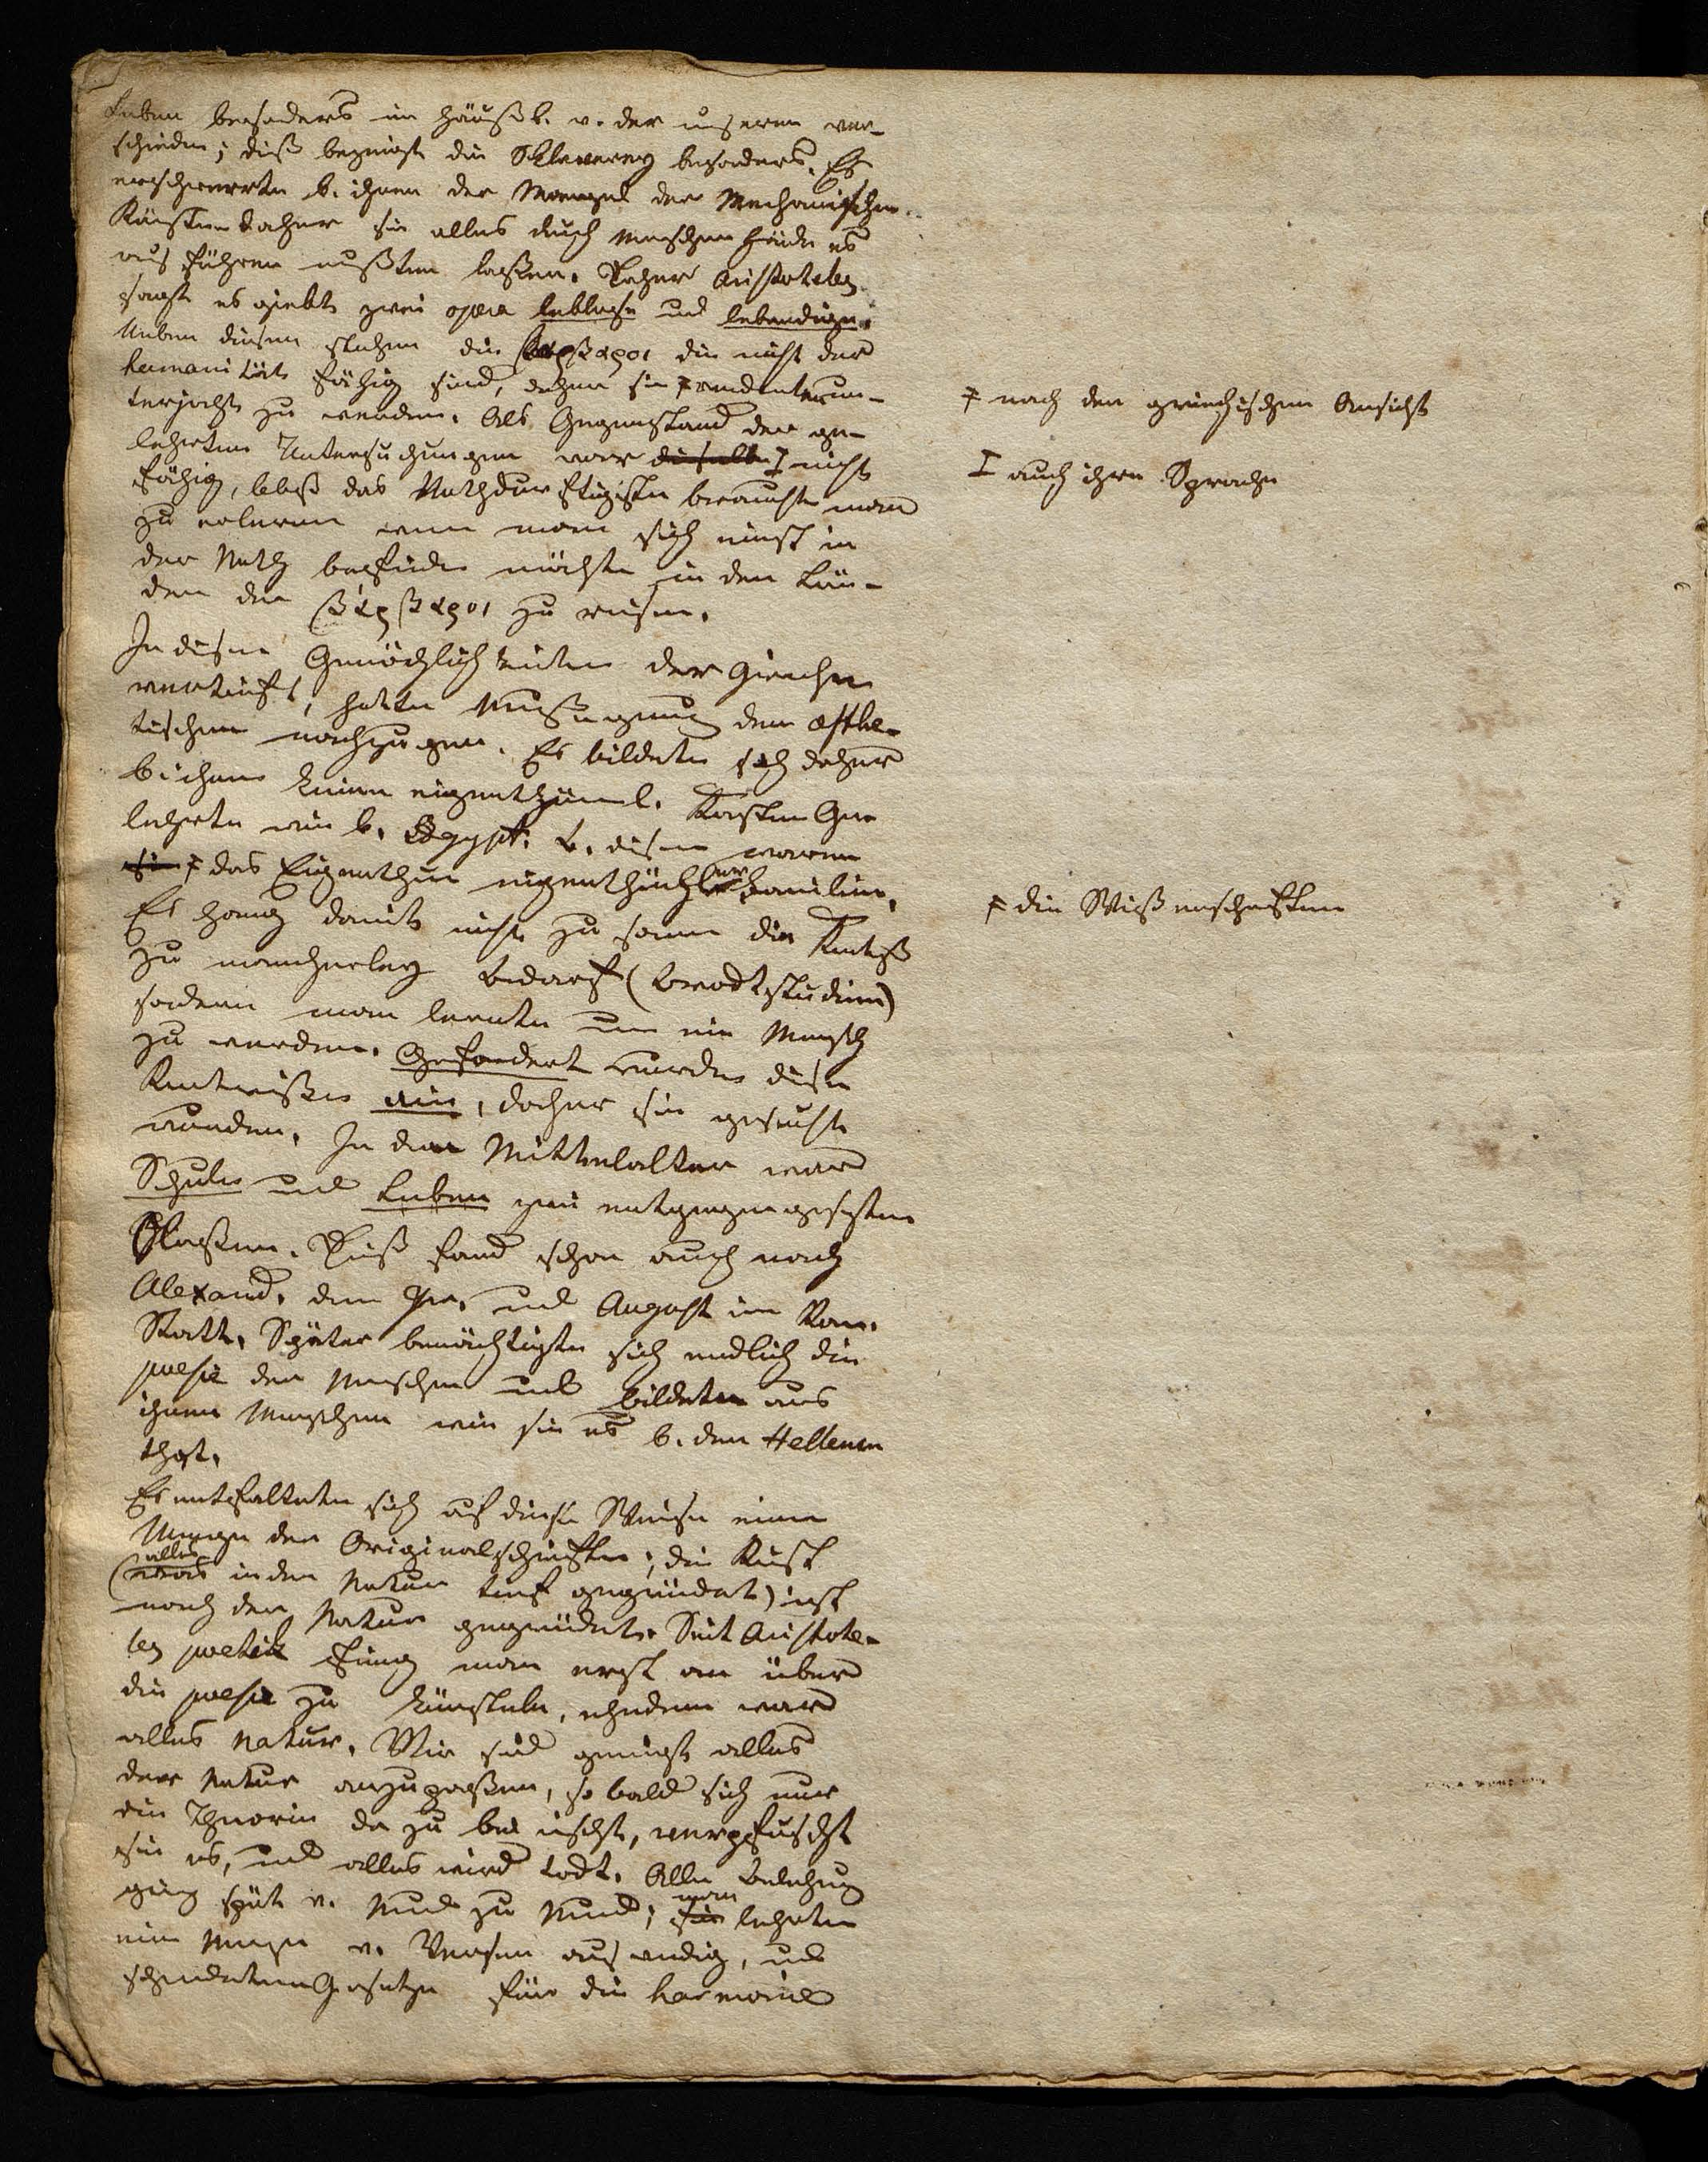 Leben besonders im häußl. v. der unseren ver-
schieden; dieß bezeugt die Sklaverey besonders. Es
erschwerte b. ihnen der Mangel der Mechanischen
Künsten daher sie alles durch Menschen Hände es
aus führen mußten laßen. Daher Aristoteles
sagt es giebt zwei opera leblose und lebendige.
Neben diesen stehen die βαρβαροι die nicht der
humanität fähig sind, ehe sie ǂ verdienten un-
terjocht zu werden. Als Gegenstand der ge-
lehrten Untersuchungen war dieselbe I nicht
fähig, bloß das Nothdürftigste brauchte man
zu erlernen wenn man sich einst in
der Noth befinden möchte in den Län-
dern der βάρβαροι zu reisen.
In diesen Gemächlichkeiten der Griechen
vertieft, hatten Muße genug dem æsthe-
tischen nachzugehen. Es bildete sich daher
b. ihnen keine eigenthüml. Kasten Ge-
lehrte wie b. Egypt. b. diesen waren
sie ǂ das Eigenthum eigenthümlicher Familien.
Es hang damit nicht zusammen die Kentniß
zu mancherley Bedarf (Brodtstudium)
sondern man lernte um ein Mensch
zu werden. Gefordert wurden diese
Kentniße nie, daher sie gesucht
wurden. In dem Mittelalter war
Schule und Leben zwei entgegengesetzte
Claßen. Dieß fand schon auch nach
Alexand. dem Gr. und August in Rom
Statt. Später bemächtigte sich endlich die
poesie der Menschen und bildete aus
ihnen Menschen wie sie es b. den Hellenen
that.
Es entfaltete sich auf diese Weise eine
Menge der Originalschriften; die Kunst
(alles in der Natur tief gegründet) ist
nach der Natur gegründet. Seit Aristote-
les poetik fing man erst an über
die poesie zu künsteln, ehedem war
alles Natur. Wir sind geneigt alles
der Natur anzupaßen, so bald sich nur
die Theorie da zu bei mischt, verpfuscht
sie es, und alles wird todt. Alle Belehrung
ging spät v. Mund zu Mund; man lehrte
eine Menge v. Versen auswendig, und
Gesetze für die harmonie
ǂ nach der griechischen Ansicht
I auch ihre Sprache
ǂ die Wißenschaften